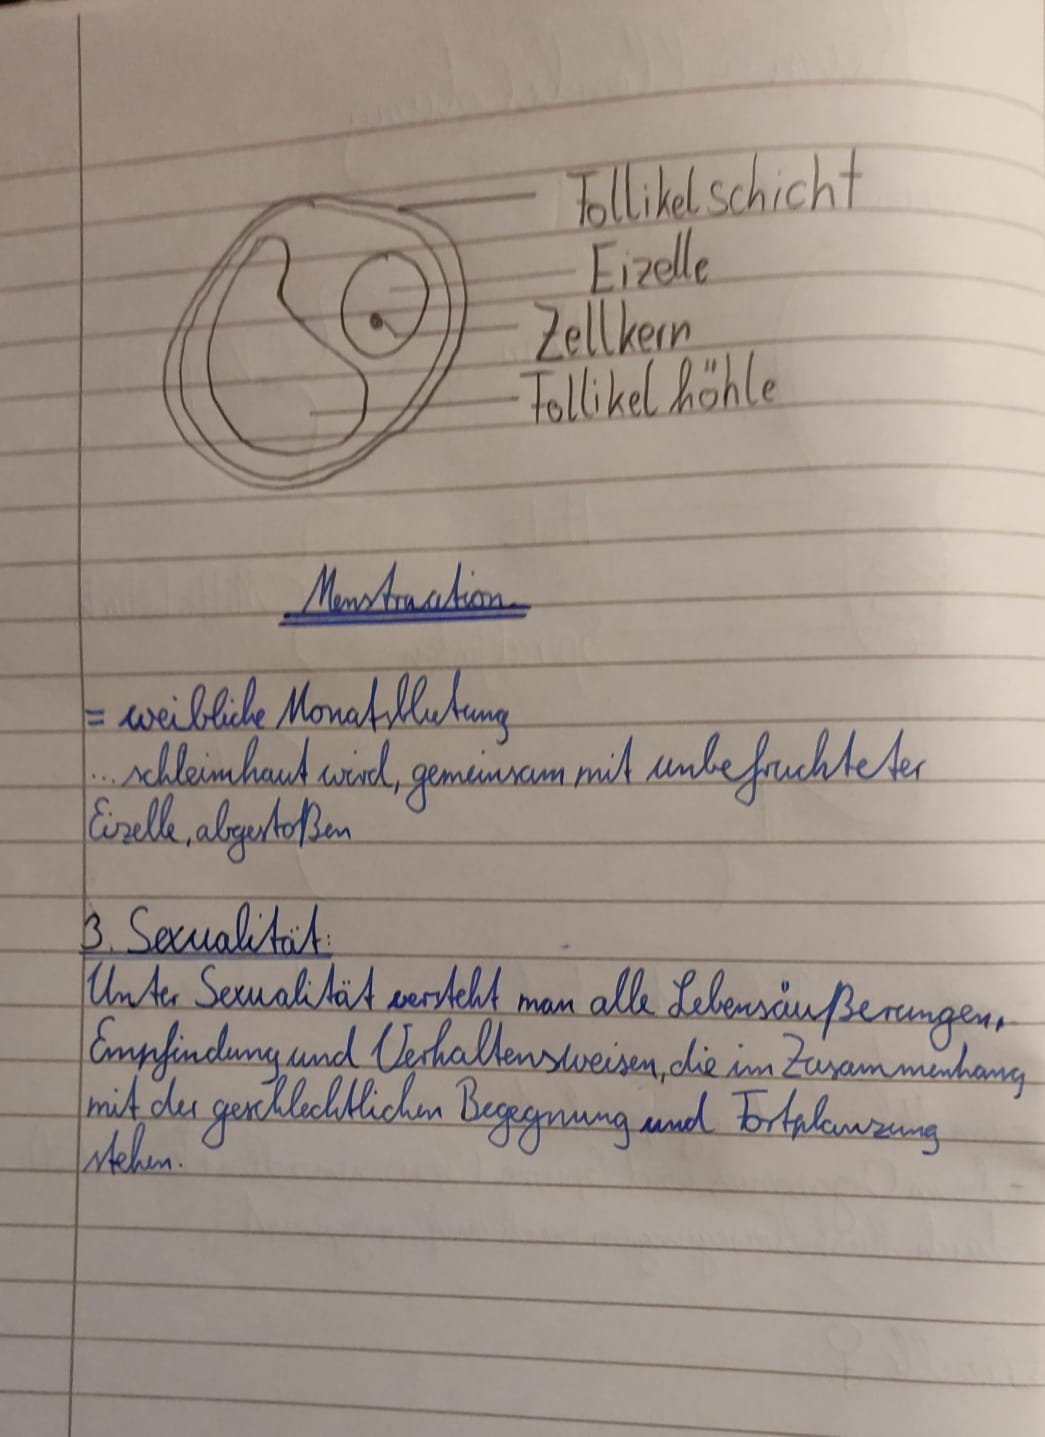 Follikelschicht
Eizelle
Zellkern
Follikelhöhle
Menstruation
= weibliche Monatsblutung
...schleimhaut wird, gemeinsam mit unbefruchteter
Eizelle, abgestoßen
3. Sexualität:
Unter Sexualität versteht man alle Lebensäußerungen,
Empfindung und Verhaltensweisen, die im Zusammenhang
mit der geschlechtlichen Begegnung und Fortplanzung
stehen.